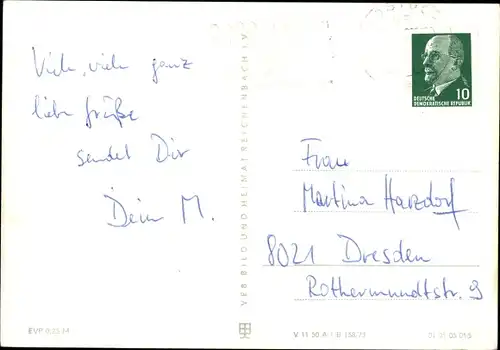 Viele, viele ganz
liebe Grüße
sendet Dir
Dein M.
EVP 0,25 M
VEB BILD UND HEIMAT REICHENBACH i. V.
10
DEUTSCHE
DEMOKRATISCHE REPUBLIK
Frau
Martina Harzdorf
8021 Dresden
Rothermundtstr. 9
V 11 50 A 1 B